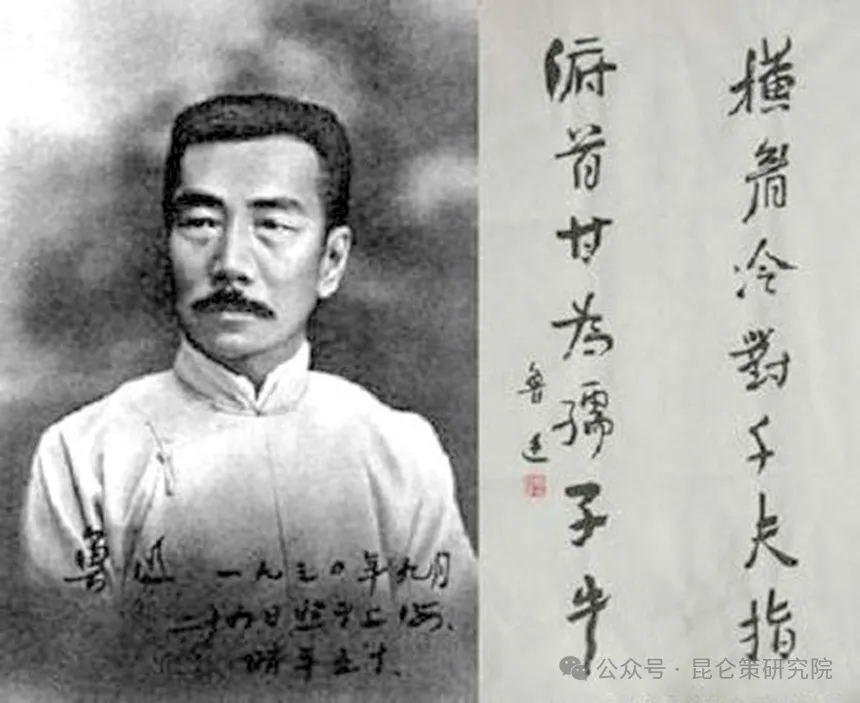 魯迅 一九三〇年九月
二十四日照于上海,
時年五十.
横眉冷對千夫指
俯首甘為孺子牛
魯迅
公众号 · 昆仑策研究院